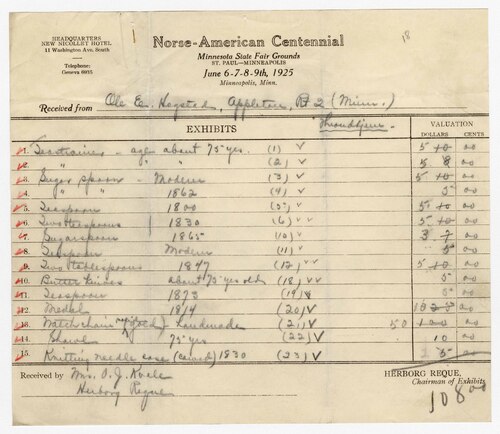 18
HEADQUARTERS
NEW NICOLLET HOTEL
11 Washington Ave. South
Telephone:
Geneva 6935
Norse-American Centennial
Minnesota State Fair Grounds
ST. PAUL—MINNEAPOLIS
June 6-7-8-9th, 1925
Minneapolis, Minn.
Received from Ole E. Hogsted, Appleton, Rt 2 (Minn.)
EXHIBITS
VALUATION
DOLLARS CENTS
1. age about 75 yrs. (1) ✓ 00
2. " " " (2) ✓ 00
3. Sugar spoon - Modern (3) ✓ 00
4. " " 1862 (4) ✓ 5 00
5. Teaspoon 1800 (5) ✓ 00
6. Two tea spoons 1830 (6) ✓✓ 00
7. Sugarspoon 1865 (10) ✓ 00
8. Teaspoon Modern (11) ✓ 5 00
9. Two tablespoons 1847 (12) ✓✓ 00
10. Butter knives about 75 yrs old (18) ✓✓ 5 00
11. Teaspoon 1873 (19) ✓ 5 00
12. Medal 1814 (20) ✓ 00
13. Watch chain (gold) Handmade (21) ✓ 50 00
14. Shawl 75 yrs (22) ✓ 10 00
15. Knitting needle case (carved) 1830 (23) ✓ 00
Received by Mrs. O. J. Kvale
Herborg Reque
HERBORG REQUE,
Chairman of Exhibits
108 00